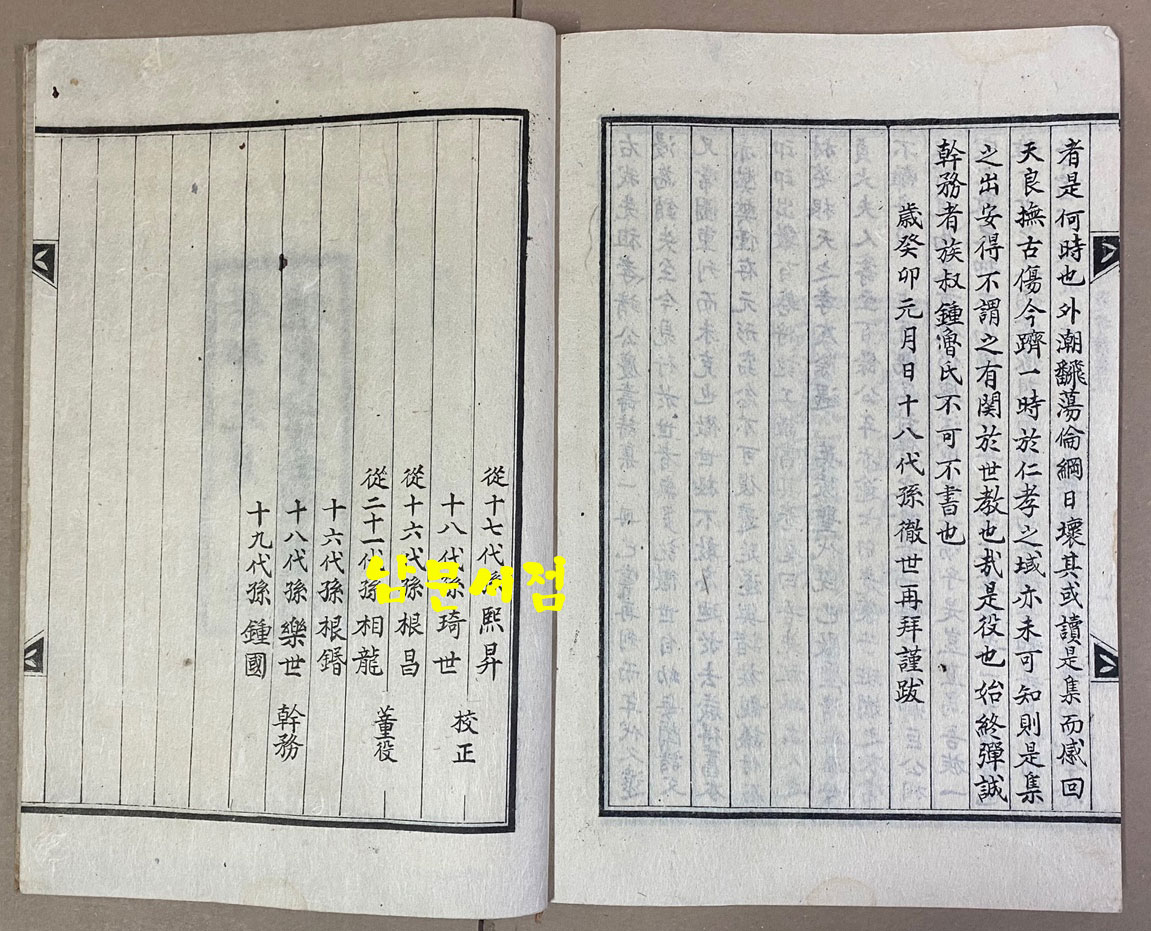 者是何時也外潮飜蕩倫綱日壞其或讀是集而感回
天良撫古傷今躋一時於仁孝之域亦未可知則是集
之出安得不謂之有関於世教也㢤是役也始終彈誠
幹務者族叔鍾魯氏不可不書也
歲癸卯元月日十八代孫徹世再拜謹跋
從十七代孫熙昇
十八代孫琦世
校正
從十六代孫根昌
從二十一代孫相龍
董役
十六代孫根鍲
十八代孫樂世
幹務
十九代孫鍾國
삼문서점